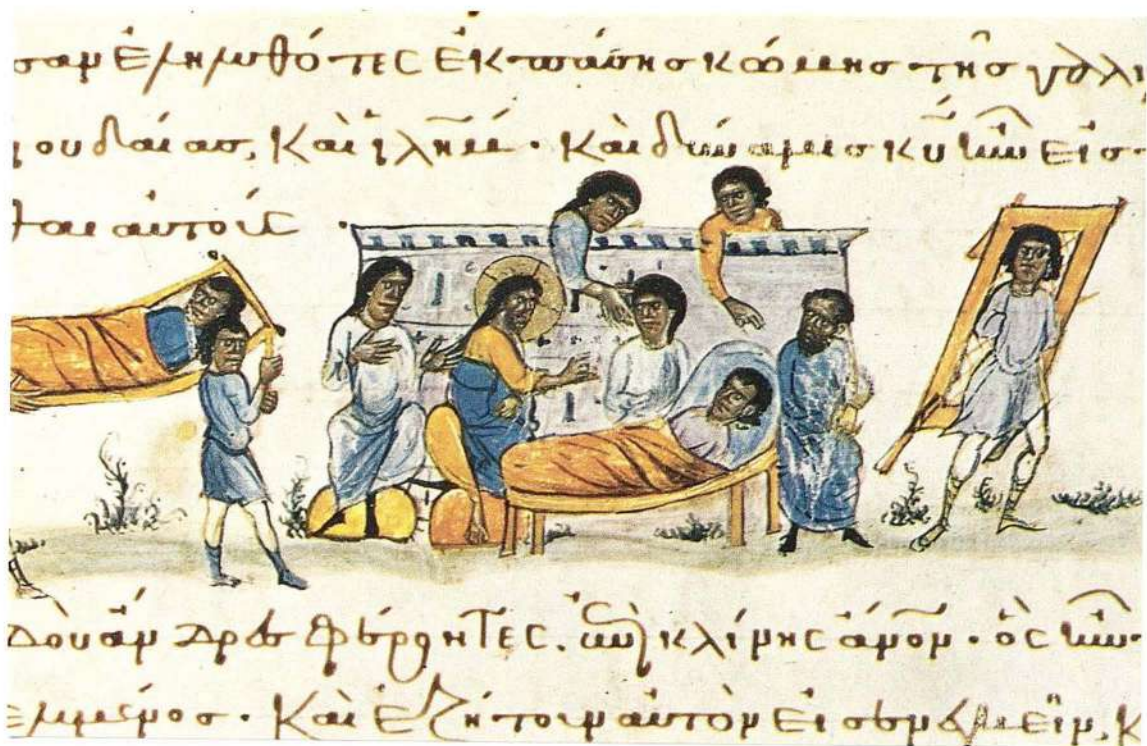 σαν ἐληλυθότες ἐκ πάσης κώμης τῆς γαλι
ιουδαίας, καὶ ἰλη̄μ̄· καὶ δύναμις κ̄ῡ ἦν εἰσ
θαι αυτούς ·
δοὺ ἄνδρες φέροντες, ἐπὶ κλίνης ἄν̄ον̄· ὃς ἦν
ελυμένος· καὶ ἐζήτουν αὐτὸν εἰσενεγκεῖν, κ